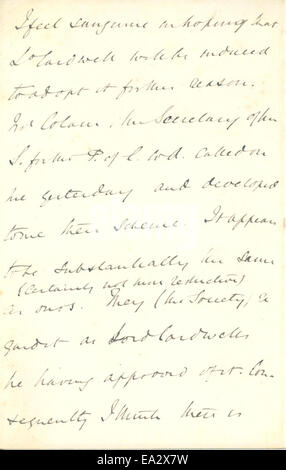 I feel sanguine in hoping that
Ld Cardwell will be induced
to adopt it for this reason.
Mr Colam, the Secretary of the
S. for the P. of C. to A. called on
me yesterday and developed
to me their scheme. It appears
to be substantially the same
(certainly not more restrictive)
as ours. They (the Society) re
gard it as Lord Cardwells
he having approved of it. Con-
sequently I think there is
alamy
Image ID: EA2X7W
www.alamy.com